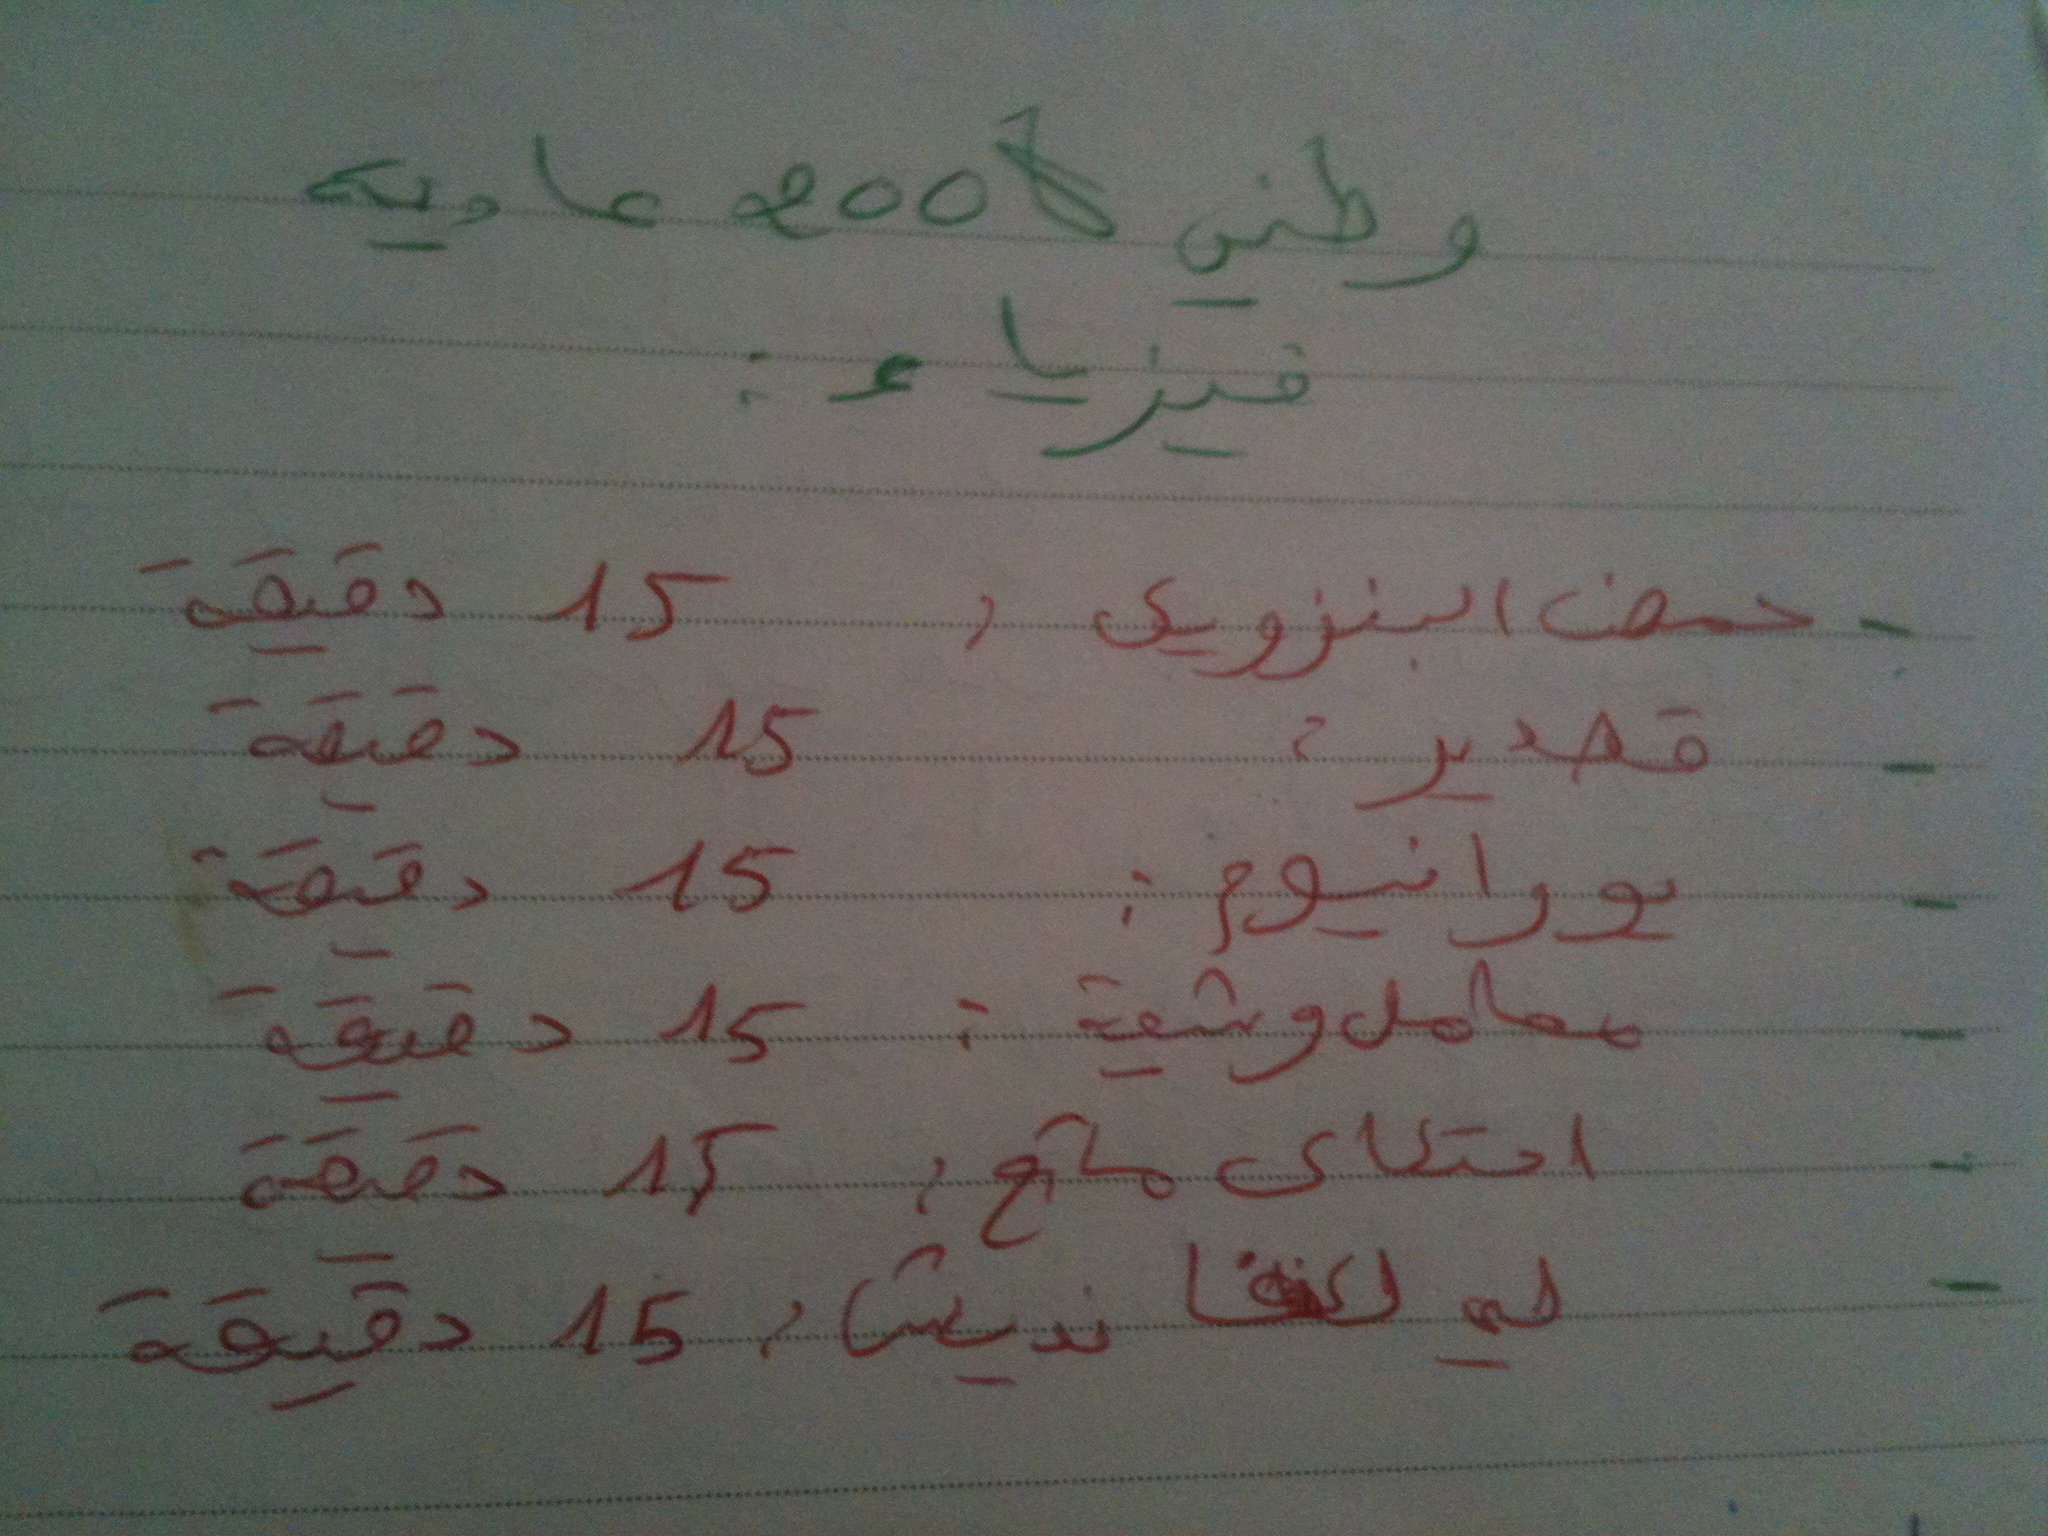 وطني 2008 عادية
فيزياء :
- حمض البنزويك : 15 دقيقة
- قصدير : 15 دقيقة
- يورانيوم : 15 دقيقة
- معامل وشيعة : 15 دقيقة
- احتكاك مائع : 15 دقيقة
- : 15 دقيقة